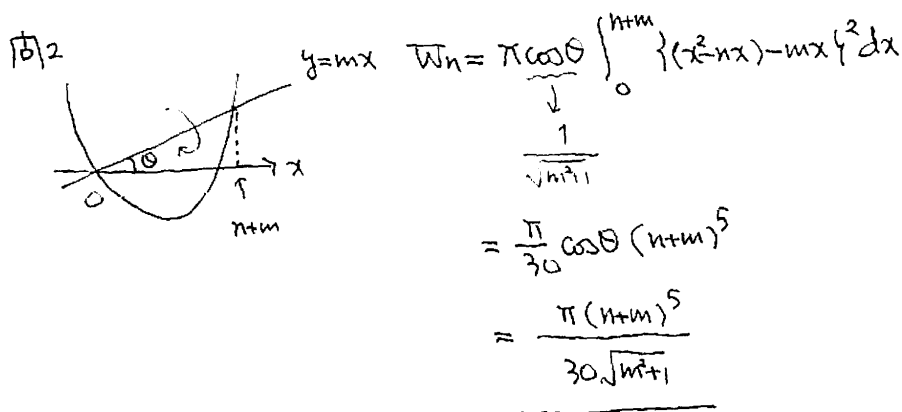 問2
y=mx
Wn = π cosθ ∫₀ⁿ⁺ᵐ {(x²-nx)-mx}² dx
↓
1/√(m²+1)
θ
x
O
↑
n+m
= π/30 cosθ (n+m)⁵
= π(n+m)⁵ / 30√(m²+1)